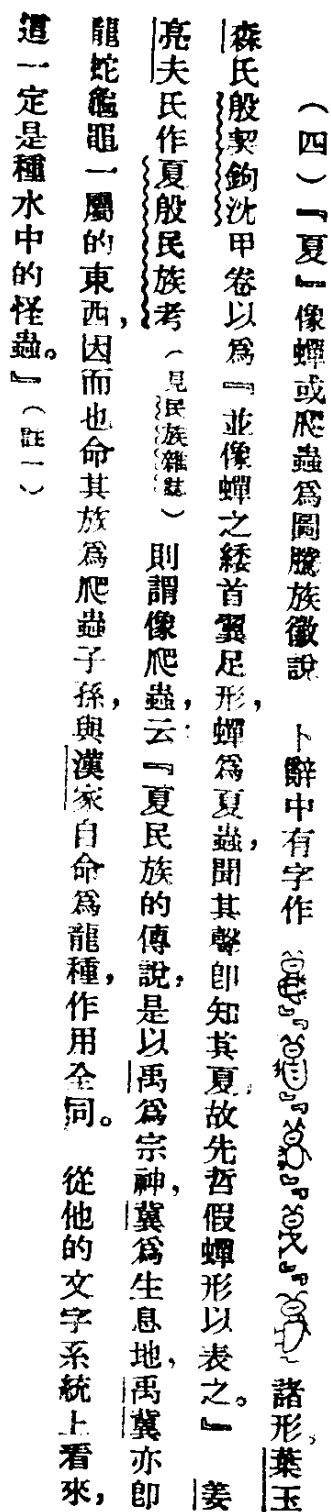 （四）『夏』像蟬或爬蟲爲圖騰族徽說　卜辭中有字作『』『』『』『』『』諸形，葉玉
森氏殷契鉤沈甲卷以爲『並像蟬之緌首翼足形，蟬爲夏蟲，聞其聲卽知其夏，故先哲假蟬形以表之。』姜
亮夫氏作夏殷民族考（見民族雜誌）則謂像爬蟲，云：『夏民族的傳說，是以禹爲宗神，冀爲生息地，禹冀亦卽
龍蛇龜黽一屬的東西，因而也命其族爲爬蟲子孫，與漢家自命爲龍種，作用全同。從他的文字系統上看來，
這一定是種水中的怪蟲。』（註一）